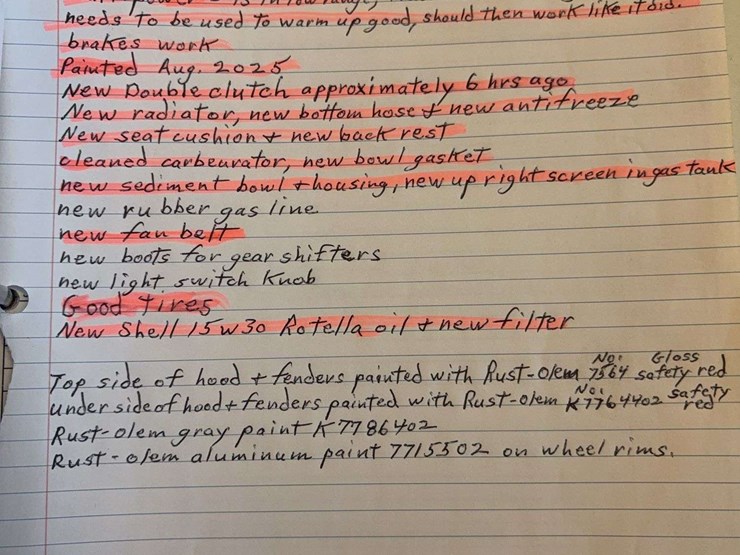 needs to be used to warm up good, should then work like it did.
brakes work
Painted Aug. 2025
New Double clutch approximately 6 hrs ago
New radiator, new bottom hose & new antifreeze
New seat cushion & new back rest
cleaned carbeurator, new bowl gasket
new sediment bowl & housing, new up right screen in gas tank
new rubber gas line
new fan belt
new boots for gear shifters
new light switch Knob
Good tires
New Shell 15w30 Rotella oil & new filter
Top side of hood & fenders painted with Rust-Olem No: 7564 Gloss safety red
under side of hood & fenders painted with Rust-olem No: K7764402 safety red
Rust-olem gray paint K7786402
Rust-olem aluminum paint 7715502 on wheel rims.